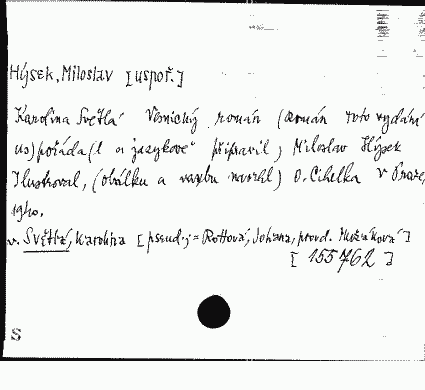 Hýsek, Miloslav [uspoř.]
Karolina Světlá Vesnický román (Román toto vydání
uspořáda(l a jazykově připravil) Miloslav Hýsek
Ilustroval, (obálku a vazbu navrhl) O. Cihelka V Praze,
1940.
v. Světlá, Karolina [pseud.; = Rottová, Johana, provd. Mužáková]
[155762]
S